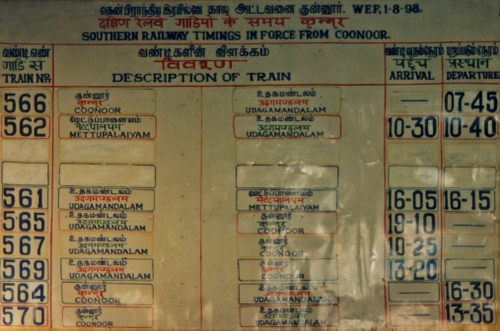 தென் பிராந்திய ரயில்வே கால அட்டவணை குன்னூர். W.E.F, 1-8-98.
दक्षिण रेलवे गाडियों के समय कुन्नूर
SOUTHERN RAILWAY TIMINGS IN FORCE FROM COONOOR.
வண்டி எண் வண்டிகளின் விளக்கம்
गाडि स विवरण पहुँच प्रस्थान
TRAIN Nº. DESCRIPTION OF TRAIN ARRIVAL DEPARTURE
குன்னூர் உதகமண்டலம்
566 कुन्नूर उदगमण्डलम — 07-45
COONOOR UDAGAMANDALAM
மேட்டுப்பாளையம் உதகமண்டலம்
562 मेट्टुपालयम उदगमण्डलम 10-30 10-40
METTUPALAIYAM UDAGAMANDALAM
உதகமண்டலம் மேட்டுப்பாளையம்
561 उदगमण्डलम मेट्टुपालयम 16-05 16-15
UDAGAMANDALAM METTUPALAIYAM
உதகமண்டலம் குன்னூர்
565 उदगमण्डलम कुन्नूर 19-10 —
UDAGAMANDALAM COONOOR
உதகமண்டலம் குன்னூர்
567 उदगमण्डलम कुन्नूर 10-25 —
UDAGAMANDALAM COONOOR
உதகமண்டலம் குன்னூர்
569 उदगमण्डलम कुन्नूर 13-20 —
UDAGAMANDALAM COONOOR
குன்னூர் உதகமண்டலம்
564 कुन्नूर उदगमण्डलम — 16-30
COONOOR UDAGAMANDALAM
குன்னூர் உதகமண்டலம்
570 कुन्नूर उदगमण्डलम — 13-35
COONOOR UDAGAMANDALAM